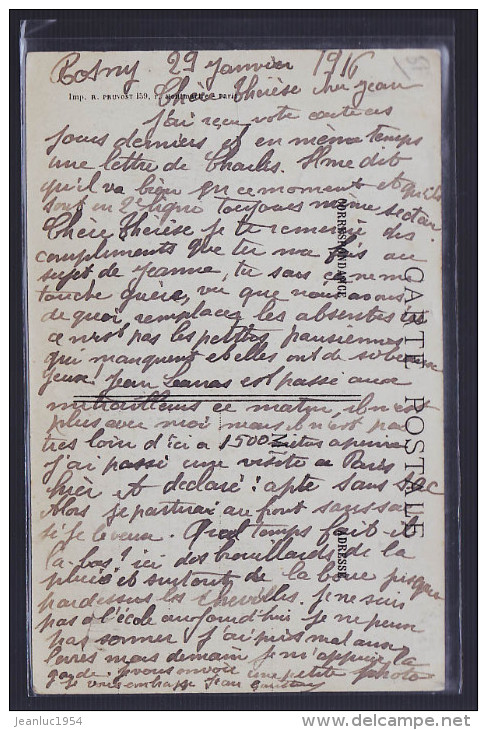 Rosny 29 janvier 1916
Chère Thérèse cher Jean
Imp. R. PRUVOST 159, Paris
J'ai reçu votre carte ces
jours derniers et en même temps
une lettre de Charles. Il me dit
qu'il va bien en ce moment et qu'ils
sont en 2e ligne toujours même secteur
Chère Thérèse je te remercie des
compliments que tu me fais au
sujet de Jeanne, tu sais ça ne me
touche guère, vu que nous avons
de quoi remplacer les absentes
ce n'est pas les petites parisiennes
qui manquent et elles ont de si beaux
yeux! Jean est passé aux
mitrailleurs ce matin, il n'est
plus avec moi mais il n'est pas
très loin d'ici a 1500 mètres a peine
j'ai passé une visite a Paris
hier et déclaré: apte sans sac
Alors je partirai au front sans sac
si je veux. Quel temps fait il
là-bas? ici des brouillards de la
pluie et surtout de la boue jusque
par dessus les chevilles. Je ne suis
pas a l'école aujourd'hui je ne peux
pas sonner j'ai pris mal aux
lèvres mais demain je
garde. je vous envoie une petite photo
je vous embrasse Jean
CARTE POSTALE
CORRESPONDANCE
ADRESSE